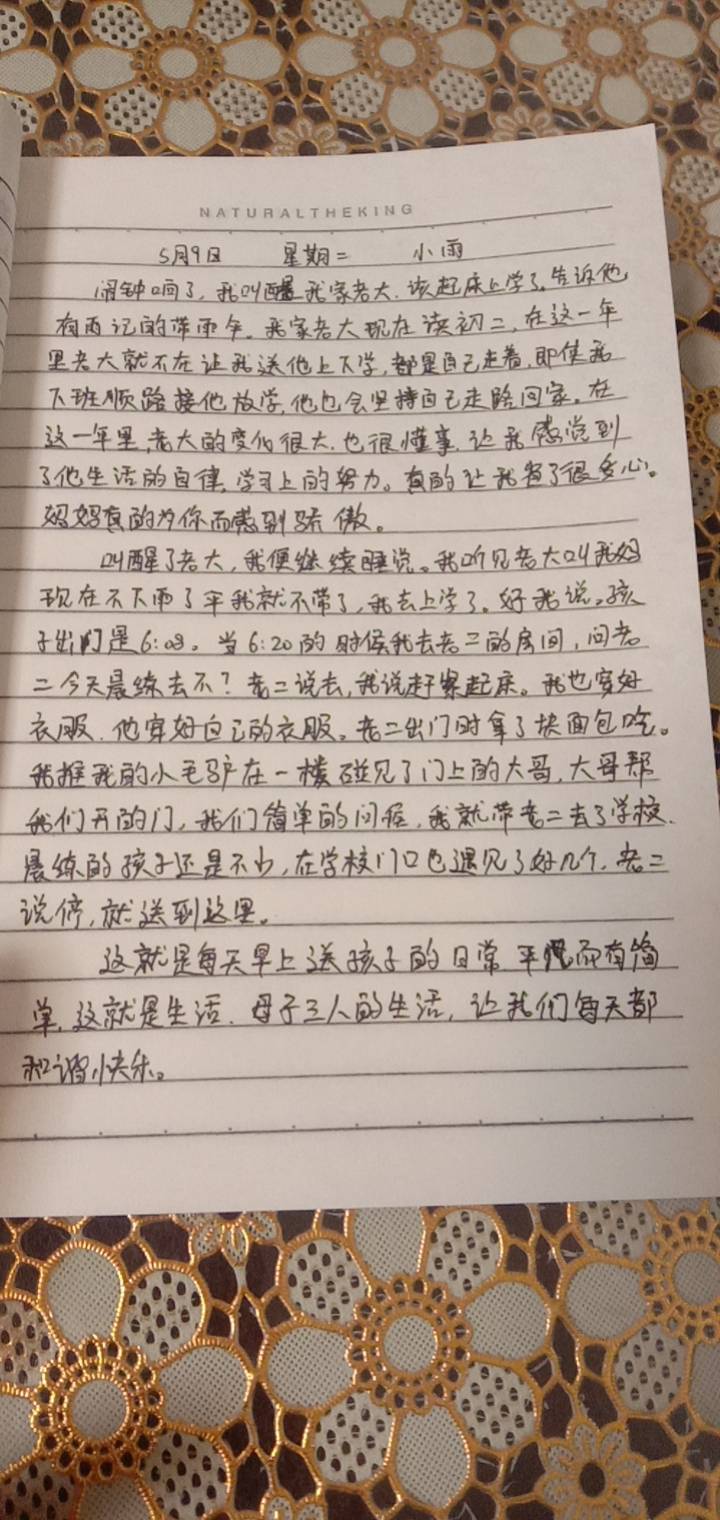 NATURALTHEKING
5月9日 星期二 小雨
闹钟响了,我叫醒我家老大.该起床上学了。告诉他
有雨记的带雨伞。我家老大现在读初二,在这一年
里老大就不在让我送他上下学,都是自己走着,即使我
下班顺路接他放学,他也会坚持自己走路回家。在
这一年里,老大的变化很大.也很懂事.让我感觉到
了他生活的自律,学习上的努力。真的让我省了很多心。
妈妈真的为你而感到骄傲。
叫醒了老大,我便继续睡觉。我听见老大叫我妈
现在不下雨了伞我就不带了,我去上学了。好我说。孩
子出门是6:03。当6:20的时候我去老二的房间,问老
二今天晨练去不?老二说去,我说赶紧起床。我也穿好
衣服.他穿好自己的衣服。老二出门时拿了块面包吃。
我推我的小毛驴在一楼碰见了门上的大哥,大哥帮
我们开的门,我们简单的问侯.我就带老二去了学校.
晨练的孩子还是不少,在学校门口也遇见了好几个.老二
说停,就送到这里。
这就是每天早上送孩子的日常 平而有简
单.这就是生活.母子三人的生活,让我们每天都
和谐快乐。